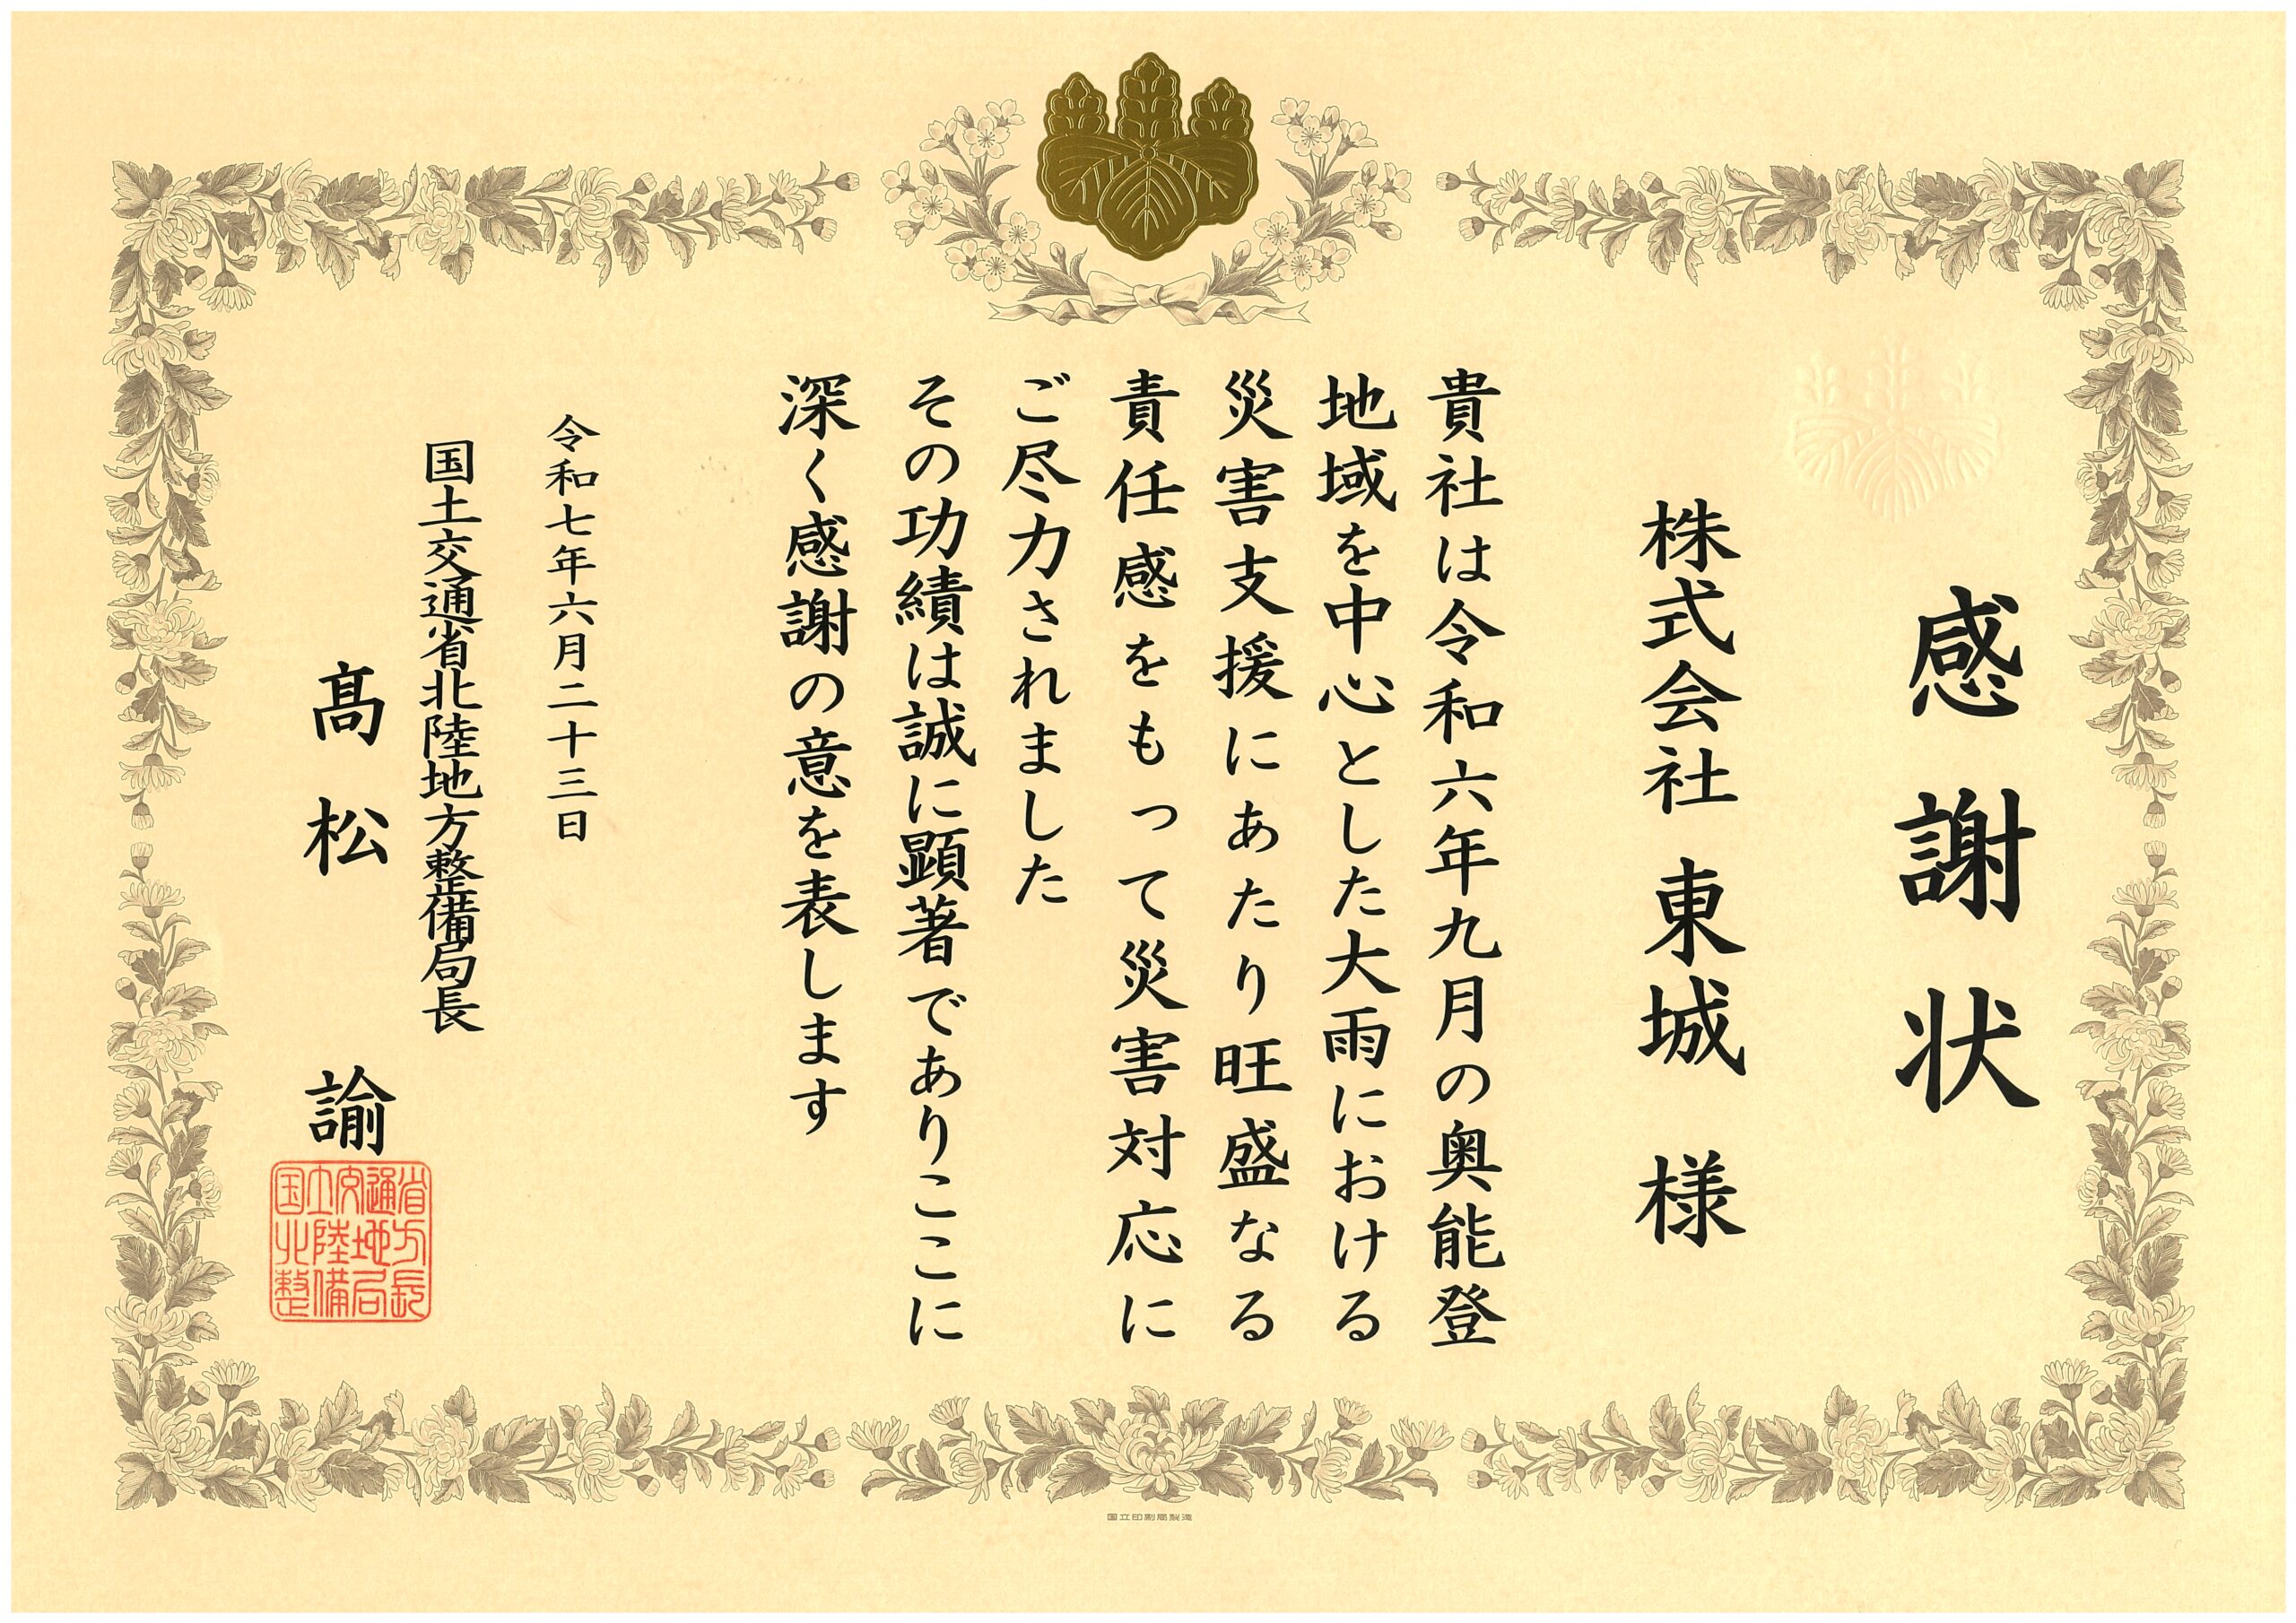 感謝状
株式会社 東城 様
貴社は令和六年九月の奥能登
地域を中心とした大雨における
災害支援にあたり旺盛なる
責任感をもって災害対応に
ご尽力されました
その功績は誠に顕著でありここに
深く感謝の意を表します
令和七年六月二十三日
国土交通省北陸地方整備局長
髙松 諭
国土交通省
北陸地方
整備局長
国立印刷局製造